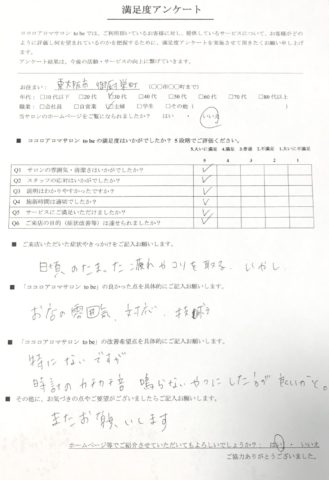 満足度アンケート
ココロアロマサロン to be では、ご利用頂いているお客様に対し、提供しているサービスについて、お客様がどの
ように評価し何を望まれているのかを把握するために、満足度アンケートを実施させて頂きたくお願い申し上げ
ます。
アンケート結果は、今後の活動・サービスの向上に繋げていきます。
お住まい： 東大阪市 御厨栄町 （○○市○○町まで）
年代：□10代以下 □20代 ☑30代 □40代 □50代 □60代 □70代 □80代以上
職業：□会社員 □自営業 ☑主婦 □学生 □その他（ ）
当サロンのホームページをご覧になりましたか？ はい ・ いいえ
■ ココロアロマサロン to be の満足度はいかがでしたか？5段階でご評価ください。
5.大いに満足 4.満足 3.普通 2.不満足 1.大いに不満足
5 4 3 2 1
Q1 サロンの雰囲気・清潔さはいかがでしたか？ ✓
Q2 スタッフの応対はいかがでしたか？ ✓
Q3 説明はわかりやすかったですか？ ✓
Q4 施術時間は適切でしたか？ ✓
Q5 サービスにご満足いただけましたか？ ✓
Q6 ご来店の目的（症状改善等）は達せられましたか？ ✓
■ ご来店いただいた症状やきっかけをご記入お願いします。
日頃のたまった疲れやコリを取る、いやし
■ 「ココロアロマサロン to be」の良かった点を具体的にご記入お願いします。
お店の雰囲気、対応、技術
■ 「ココロアロマサロン to be」の改善希望点を具体的にご記入お願いします。
特にないですが
時計のカチカチ音 鳴らないやつにした方が良いかと。
■ その他に、お気づきの点やご要望がございましたらご記入お願いします。
またお願いします
ホームページ等でご紹介させていただいてもよろしいでしょうか？： はい ・ いいえ
ご協力ありがとうございました。